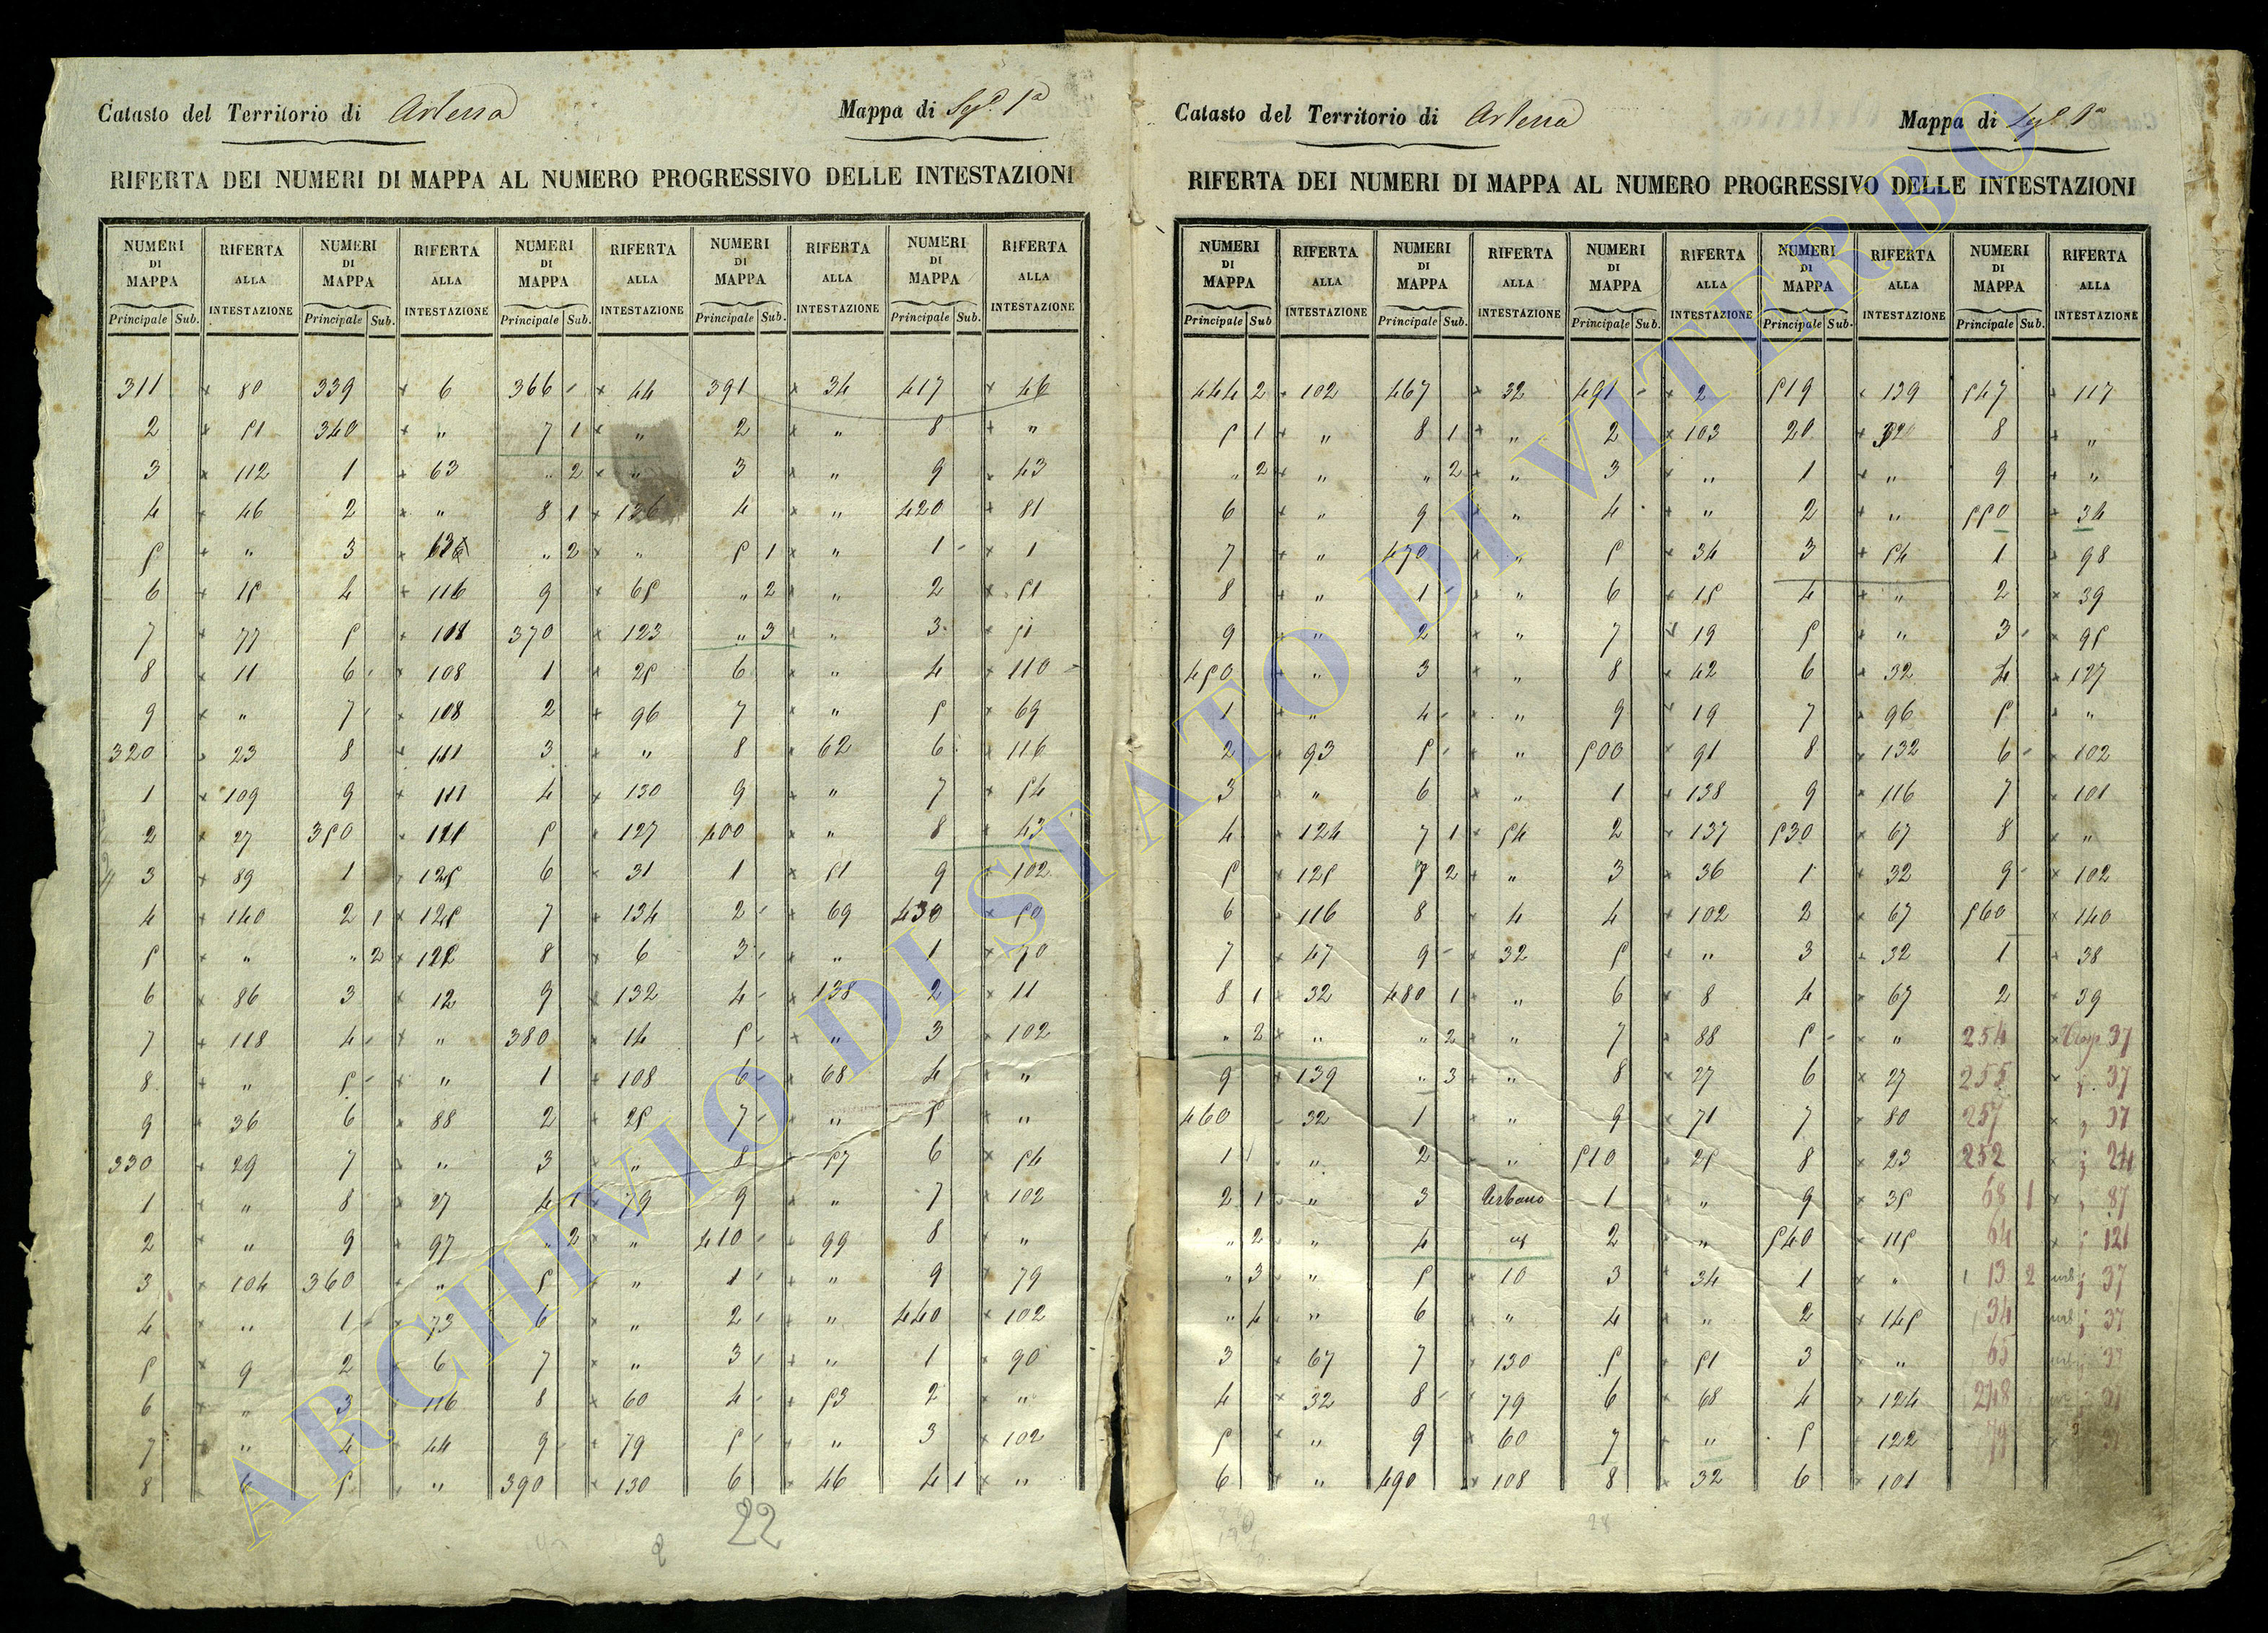 Catasto del Territorio di Artena
Mappa di Sez. 1a
RIFERTA DEI NUMERI DI MAPPA AL NUMERO PROGRESSIVO DELLE INTESTAZIONI
NUMERI DI MAPPA RIFERTA ALLA INTESTAZIONE NUMERI DI MAPPA RIFERTA ALLA INTESTAZIONE NUMERI DI MAPPA RIFERTA ALLA INTESTAZIONE NUMERI DI MAPPA RIFERTA ALLA INTESTAZIONE NUMERI DI MAPPA RIFERTA ALLA INTESTAZIONE
Principale Sub. Principale Sub. Principale Sub. Principale Sub. Principale Sub.
311 × 80 339 × 6 366 - × 44 391 × 34 417 × 46
2 × 51 340 × " 7 1 × " 2 × " 8 + "
3 × 112 1 × 63 " 2 × " 3 × " 9 × 43
4 × 46 2 × " 8 1 × 136 4 × " 420 × 81
5 × " 3 × " 2 × " 5 1 × " 1 - × 1
6 × 15 4 + 116 9 × 65 " 2 × " 2 × 51
7 × 77 5 × 108 370 × 123 " 3 × " 3 × 51
8 × 11 6 × 108 1 × 25 6 × " 4 × 110
9 × " 7 × 108 2 × 96 7 × " 5 × 69
320 × 23 8 × 111 3 × " 8 × 62 6 × 116
1 × 109 9 × 111 4 × 130 9 × " 7 × 54
2 × 27 350 × 5 × 127 400 × " 8 × 43
3 × 89 1 × 125 6 × 31 1 × 51 9 × 102
4 × 140 2 1 × 125 7 × 134 2 - × 69 430 × 50
5 × " " 2 × 8 × 6 3 - × " 1 × 70
6 × 86 3 × 12 9 × 132 4 - × 138 2 × 11
7 × 118 4 - × " 380 × 14 5 - × " 3 × 102
8 × " 5 - × " 1 × 108 6 - × 68 4 × "
9 × 36 6 × 88 2 × 25 7 - × " 5 × "
330 × 29 7 × " 3 × " 8 × 57 6 × 54
1 × " 8 × 27 4 1 × 79 9 × " 7 × 102
2 × " 9 × 97 " 2 × " 410 - × 99 8 × "
3 × 104 360 × " 5 × " 1 - × " 9 × 79
4 × " 1 - × 73 6 × " 2 - × " 440 × 102
5 × 9 2 × 6 7 × " 3 - × " 1 × 90
6 × " 3 × 116 8 × 60 4 - × 53 2 × "
7 × " 4 × 44 9 - × 79 5 - × " 3 × 102
8 × 5 × " 390 × 130 6 × 46 4 1 × "
22
Catasto del Territorio di Artena
Mappa di Sez. 1a
RIFERTA DEI NUMERI DI MAPPA AL NUMERO PROGRESSIVO DELLE INTESTAZIONI
NUMERI DI MAPPA RIFERTA ALLA INTESTAZIONE NUMERI DI MAPPA RIFERTA ALLA INTESTAZIONE NUMERI DI MAPPA RIFERTA ALLA INTESTAZIONE NUMERI DI MAPPA RIFERTA ALLA INTESTAZIONE NUMERI DI MAPPA RIFERTA ALLA INTESTAZIONE
Principale Sub Principale Sub. Principale Sub. Principale Sub. Principale Sub.
444 2 × 102 467 × 32 491 - × 2 519 × 139 547 × 117
5 1 × " 8 1 × " 2 × 103 20 × 8 × "
" 2 × " " 2 × " 3 × " 1 × " 9 × "
6 × " 9 × " 4 × " 2 × " 550 × 34
7 × " 470 × " 5 × 34 3 × 54 1 × 98
8 × " 1 - × " 6 × 15 4 × " 2 × 39
9 × " 2 × " 7 × 19 5 × " 3 - × 95
450 × " 3 × " 8 × 42 6 × 32 4 × 127
1 × " 4 - × " 9 × 19 7 × 96 5 × "
2 × 93 5 - × " 500 × 91 8 × 132 6 - × 102
3 × " 6 × " 1 × 138 9 × 116 7 × 101
4 × 124 7 1 × 54 2 × 137 530 × 67 8 × "
5 × 125 7 2 × " 3 × 36 1 × 32 9 - × 102
6 × 116 8 × 4 4 × 102 2 × 67 560 × 140
7 × 47 9 - × 32 5 × " 3 × 32 1 × 38
8 1 × 32 480 1 × " 6 × 8 4 × 67 2 × 39
" 2 × " " 2 × " 7 × 88 5 - × " 254 × 37
9 × 139 " 3 × " 8 × 27 6 × 27 255 × " 37
460 × 32 1 × " 9 × 71 7 × 80 257 × " 37
1 × " 2 × " 510 × 25 8 × 23 252 × " 24
2 1 × " 3 Urbano 1 × " 9 × 35 68 1 × " 87
" 2 × " 4 " 2 × " 540 × 115 64 × " 121
" 3 × " 5 × 10 3 × 34 1 × " 13 2 urb " 37
" 4 × " 6 × " 4 × " 2 × 145 34 urb " 37
3 × 67 7 × 130 5 × 51 3 × " 65 37
4 × 32 8 - × 79 6 × 68 4 × 124 248
5 × " 9 × 60 7 × " 5 × 122
6 × " 490 × 108 8 × 32 6 × 101
ARCHIVIO DI STATO DI VITERBO